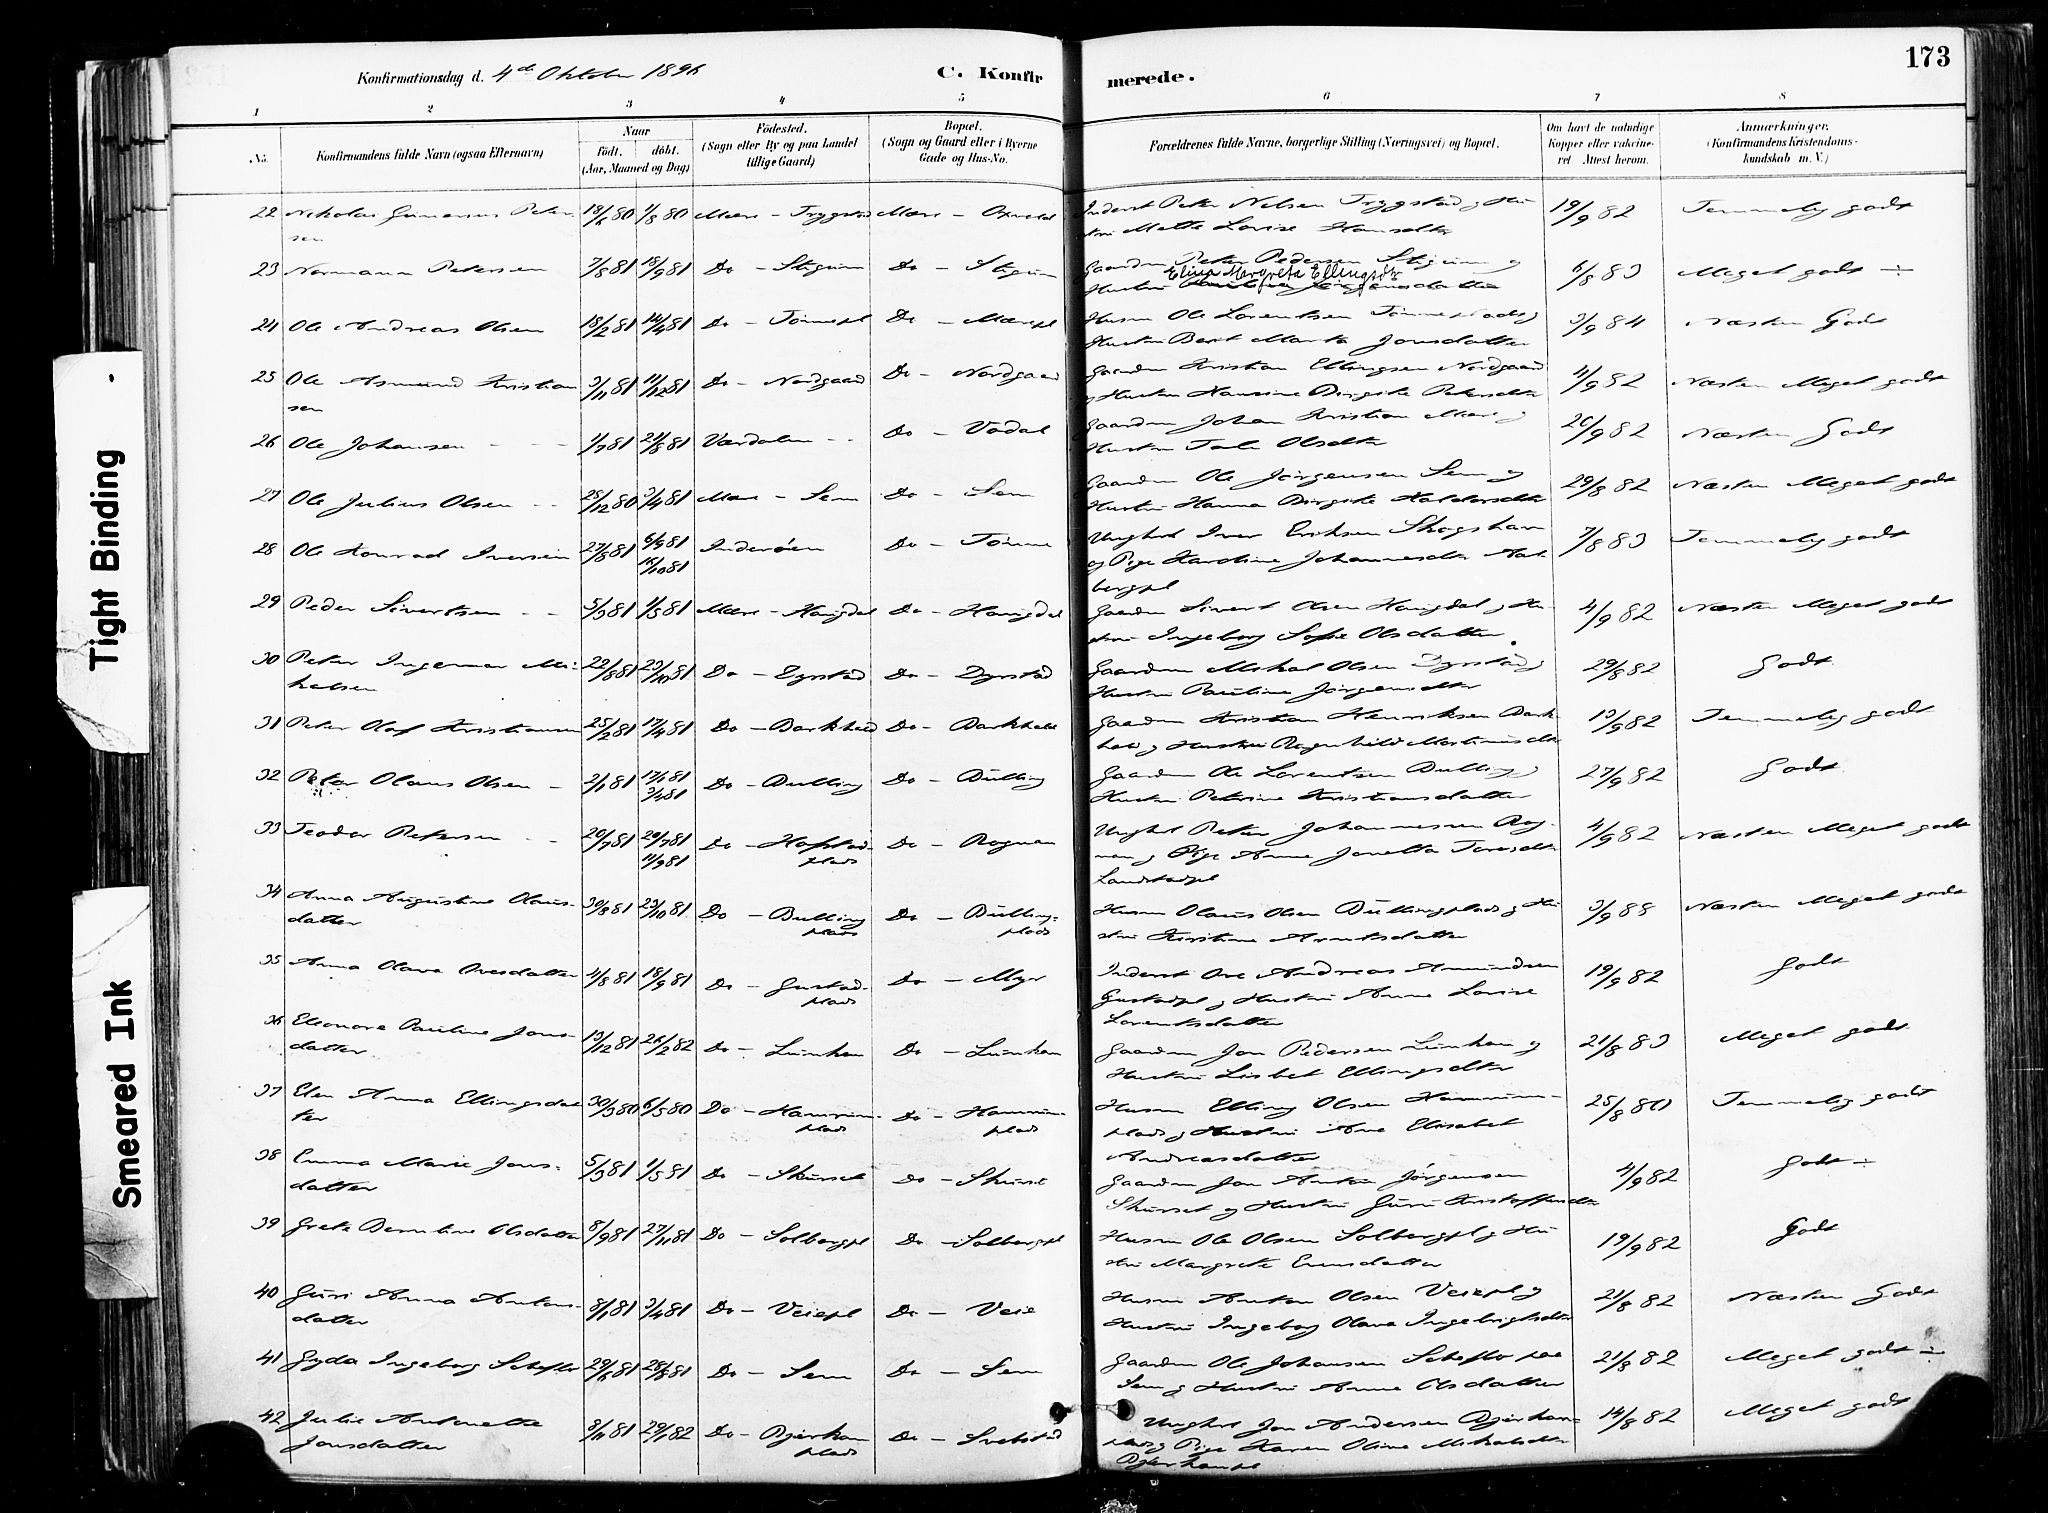 173
Konfirmationsdag d. 4de Oktober 1896 C. Konfirmerede.
1 2 3 4 5 6 7 8
No. Konfirmandens fulde Navn (ogsaa Efternavn) Naar født. døbt. (Aar, Maaned og Dag) Fødested. (Sogn eller By og paa Landet tillige Gaard) Bopæl. (Sogn og Gaard eller i Byerne Gade og Hus-No. Forældrenes fulde Navne, borgerlige Stilling (Næringsvei) og Bopæl. Om havt de naturlige Kopper eller vakcineret Attest herom. Anmærkninger. (Konfirmandens Kristendomskundskab m. V.)
22 Nikolai Gunerius Peter- 18/6 80 1/8 80 Mære - Trygstad Mære - Inderst Peter Nelsen Trygstad og Hu- 19/9 82 Temmelig godt
sen stru Mette Lovise Hansdtr
23 Normann Petersen 7/8 81 18/9 81 Do - Stigum Do - Stigum Gaardm Peter Pedersen Stigum og 6/8 83 Meget godt ÷
Elina Margreta Ellingsdtr
Hustru
24 Ole Andreas Olsen 18/2 81 14/4 81 Do - Tønnepl Do - Mærepl Husm Ole Lorentsen Tønneplads og 3/9 84 Næsten Godt
Hustru Berit Marta Jonsdatter
25 Ole Asmund Kristian- 3/11 81 11/12 81 Do - Nordgaard Do - Nordgaard Gaardm Kristian Ellingsen Nordgaard 11/9 82 Næsten Meget godt
sen og Hustru Hansine Birgitte Petersdtr
26 Ole Johansen - - - 1/7 81 21/8 81 Værdalen - - Do - Vodal Gaardm Johan Kristian Mære og 26/9 82 Næsten Godt
Hustru Olsdtr
27 Ole Julius Olsen - - 28/12 80 3/4 81 Mære - Sem Do - Sem Gaardm Ole Jørgensen Sem og 29/8 82 Næsten Meget godt
Hustru Hanna Birgitte Haldorsdtr
28 Ole Konrad Iversen 27/8 81 6/9 81 Inderøen Do - Tønne Ungkrl Iver Eriksen Skogshavn 7/8 83 Temmelig godt
16/10 81 og Pige Karoline Johannesdtr
bergpl
29 Peder Sivertsen - - 5/3 81 1/5 81 Mære - Haugdal Do - Haugdal Gaardm Sivert Olsen Haugdal og Hu- 4/9 82 Næsten Meget godt
stru Ingeborg Sofie Olsdatter
30 Peter Ingemar Mi- 22/8 81 23/10 81 Do - Dyrstad Do - Dyrstad Gaardm Mikal Olsen Dyrstad og 29/8 82 Godt
kalsen Hustru Pauline Jørgensdtr
31 Peter Olaf Kristiansen 25/2 81 17/4 81 Do - Barkhald Do - Barkhald Gaardm Kristian Henriksen Bark- 13/9 82 Temmelig godt
hald og Hustru Ragnhild Martinusdtr
32 Peter Olaus Olsen - 2/1 81 17/1 81 Do - Bulling Do - Bulling Gaardm Ole Lorentsen Bulling og 27/9 82 Godt
3/4 81 Hustru Petrine Kristiansdatter
33 Teodor Petersen - - 20/7 81 29/7 81 Do - Hofstad- Do - Rognan Ungkrl Peter Johannessen Rog- 4/9 82 Næsten Meget godt
11/9 81 plads nan og Pige Anne Jonetta
Landstadpl
34 Anna Augustine Olaus- 30/8 81 23/10 81 Do - Bulling Do - Bulling- Husm Olaus Olsen Bullingplads og Hu- 3/9 88 Næsten Meget godt
datter plads plads stru Kirstine Arntsdatter
35 Anna Olava Ovesdatter 4/8 81 18/9 81 Do - Gustad- Do - Myr Inderst Ove Andreas Amundsen 19/9 82 Godt
plads Gustadpl og Hustru Anne Lovise
Lorentsdatter
36 Eleonora Pauline Jons- 13/12 81 26/2 82 Do - Lunhan Do - Lunhan Gaardm Jon Pedersen Lunhan og 21/8 83 Meget godt
datter Hustru Lisbet Ellingsdtr
37 Elen Anna Ellingsdat- 30/3 80 6/5 80 Do - Hamrum- Do - Hamrum- Husm Elling Olsen Hamrum- 25/8 80 Temmelig godt
ter plads plads plads og Hustru Ane Elisabet
Andreasdatter
38 Emma Marie Jons- 5/3 81 1/5 81 Do - Skurset Do - Skurset Gaardm Jon Anton Jørgensen 4/9 82 Godt ÷
datter Skurset og Hustru Guri Kristoffersdtr
39 Grete Berntine Olsdatter 8/9 81 27/11 81 Do - Solbergpl Do - Solbergpl Husm Ole Olsen Solbergpl og Hu- 19/9 82 Godt
stru Margrete Evensdatter
40 Guri Anna Antons- 8/1 81 3/4 81 Do - Veiepl Do - Veie Husm Anton Olsen Veiepl og 21/8 82 Næsten Godt
datter Hustru Ingeborg Olava Ingebrigtsdtr
41 Gyda Ingeborg Scheflo 29/6 81 28/8 81 Do - Sem Do - Sem Gaardm Ole Johansen Scheflo paa 21/8 82 Meget godt ÷
Sem og Hustru Anne Olsdatter
42 Julie Antonette 8/11 81 29/1 82 Do - Bjerkan- Do - Svebstad Ungkrl Jon Andersen Bjerkan- 14/8 82 Meget godt
Jonsdatter plads plads og Pige Karen Oline Mikalsdtr
Bjerkanpl
Tight Binding
Smeared Ink